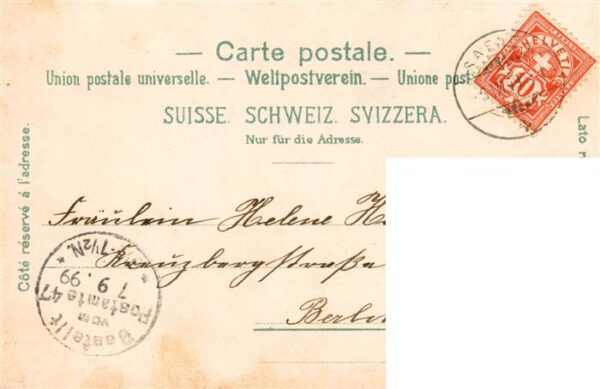 Carte postale.
Union postale universelle. — Weltpostverein. — Unione post
SUISSE. SCHWEIZ. SVIZZERA.
Nur für die Adresse.
Côté réservé à l'adresse.
Lato r
HELVETIA
10
Fräulein Helene H
Kreuzbergstraße
Berlin
Bestellt
vom
Postamte 47
7 9.99
-7½N.